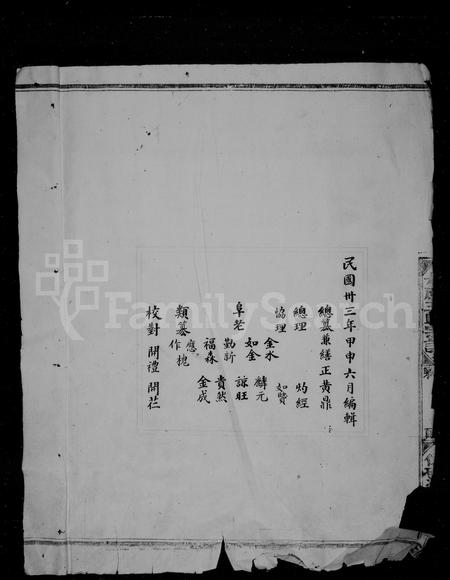 民國卅三年甲申六月編輯
總纂兼繕正黃鼎
總理 灼經
協理 金水 如賢
如金 麟元
阜老 勤新 諒旺
福森 貴然
金成
類纂 應
作槐
校對 開禮 開茫
FamilySearch